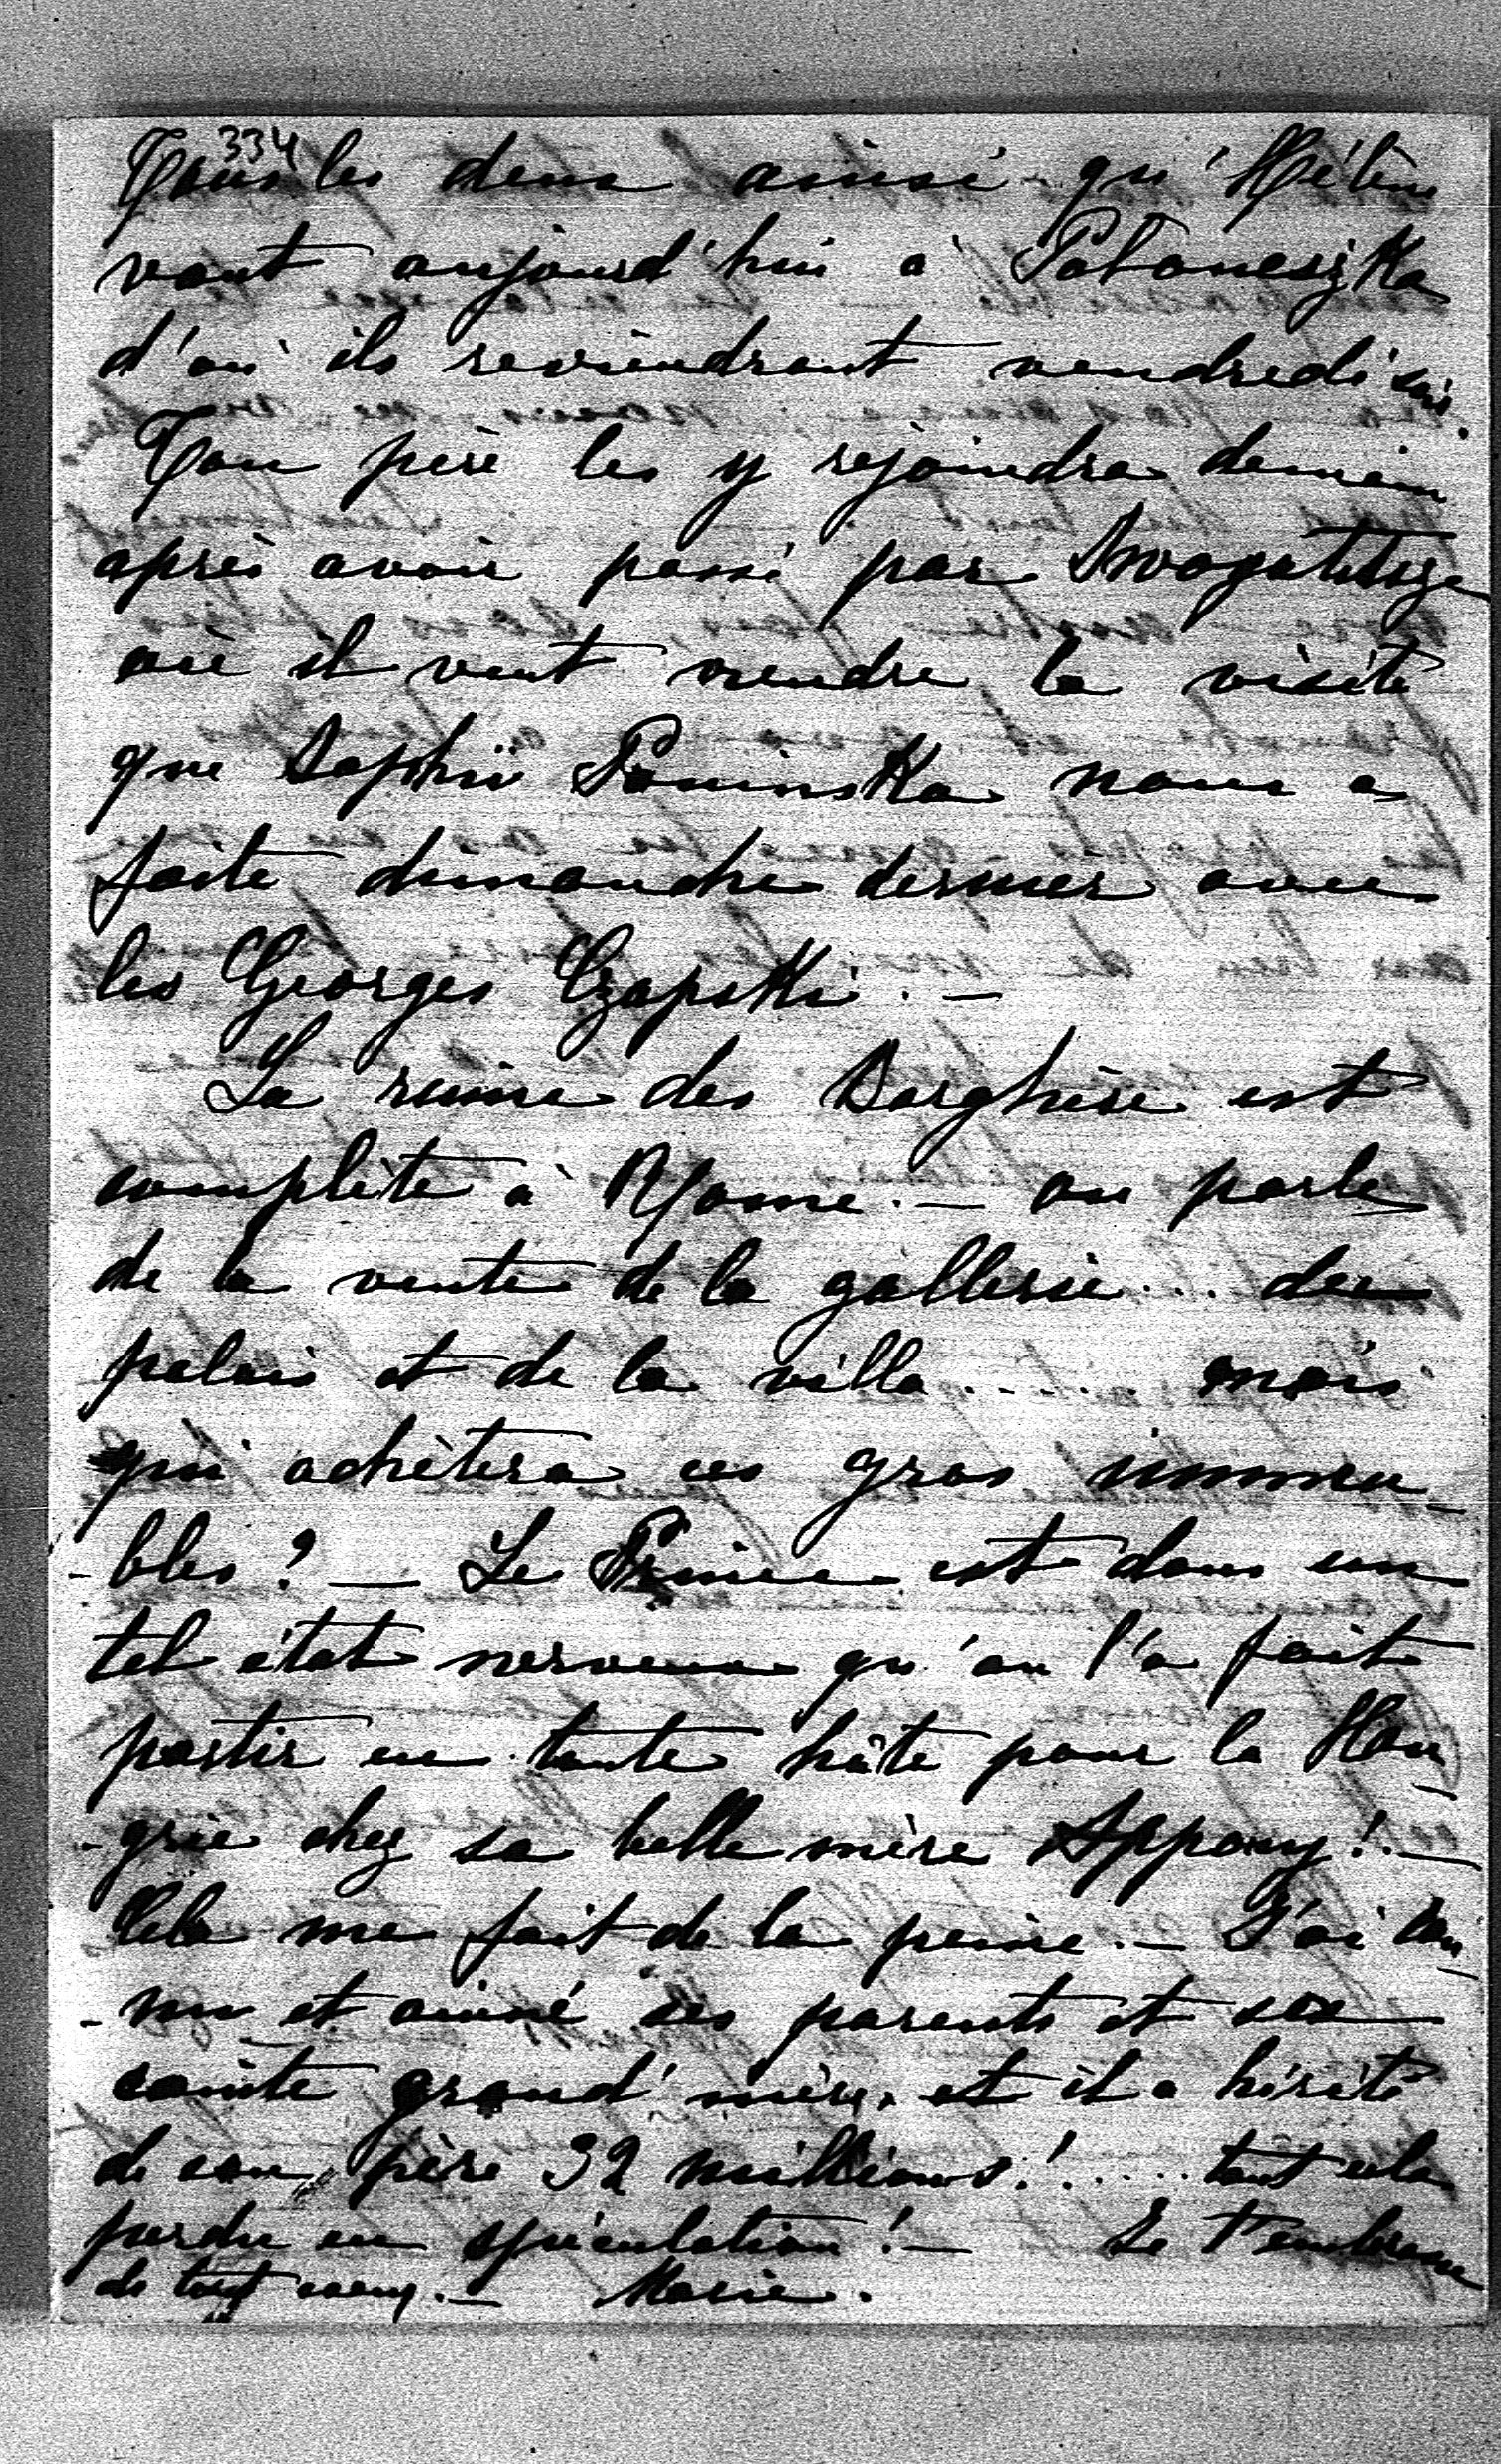 334
Tous les deux ainsi qu'Hélène
vont aujourd'hui à
d'où ils reviendront vendredi soir.
Ton père les y rejoindra demain
après avoir passé par
où il veut rendre la visite
que Sophie Poninska nous a
faite dimanche dernier avec
les Georges Czapski. —
La ruine des Borghèse est
complète à Rome. — on parle
de la vente de la gallerie... du
palais et de la villa..... mais
qui achètera ces gros immeu-
-bles? — Le Prince est dans un
tel état nerveux qu'on l'a fait
partir en toute hâte pour la Hon-
-grie chez sa belle mère Appony! —
Cela me fait de la peine. — J'ai con-
-nu et aimé ses parents et sa
sainte grand'mère, et il a hérité
de son père 32 millions!..... tout cela
perdu en spéculation! — Je t'embrasse
de tout coeur. — Marie.